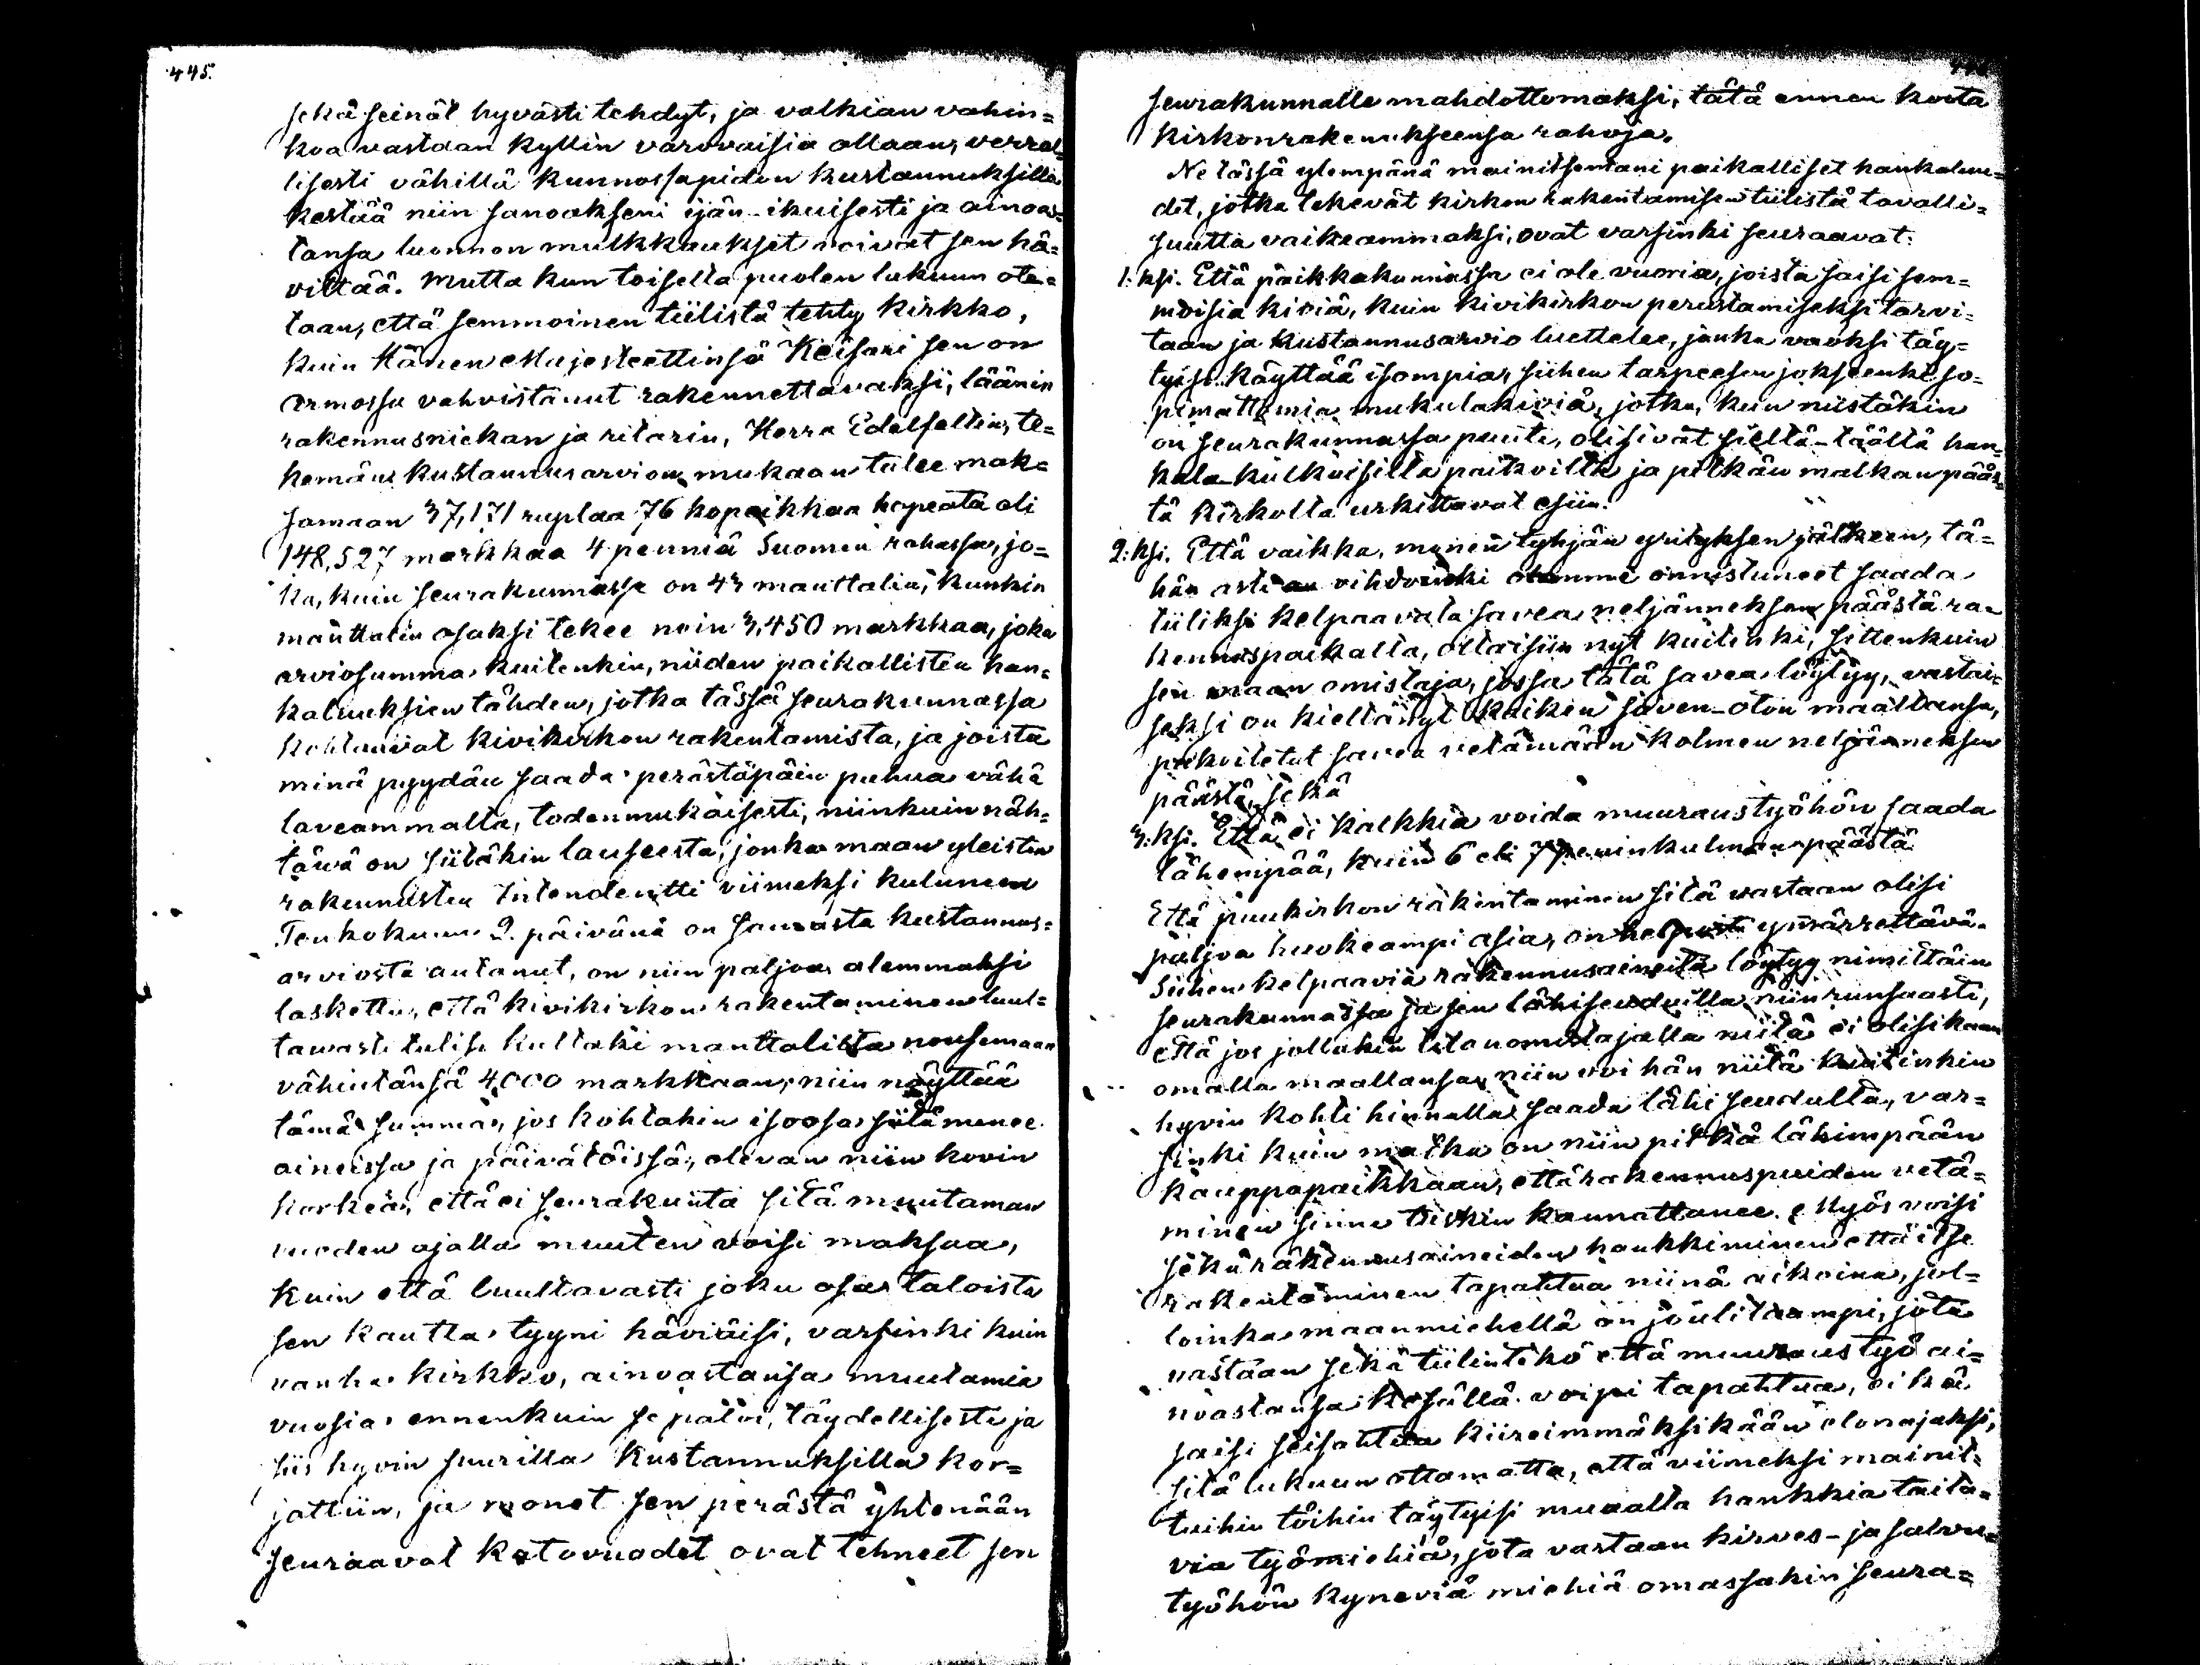 445.
sekä seinät hyvästi tehdyt, ja valkian vahin=
koa vastaan kyllin varovaisia ollaan, verral=
lisesti vähillä kunnossapidon kustannuksilla
kestää niin sanoakseni ijän-ikuisesti ja ainoas=
tansa luonnon mullkkaukset voivat sen hä=
vittää. Mutta kun toisella puolen lukuun ote=
taan, että semmoinen tiilistä tehty kirkko,
kuin Hänen Majesteettinsä Keisari sen on
armossa vahvistanut rakennettavaksi, läänin
rakennusniekan ja ritarin, Herra Edelfeltin, te=
kemän kustannusarvion mukaan tulee mak=
samaan 37,171 ruplaa 76 kopeikkaa hopeata eli
148,527 markkaa 4 penniä Suomen rahassa, jo=
ka, kuin seurakunnassa on 43 manttalia, kunkin
manttalin osaksi tekee noin 3,450 markkaa, joka
arviosumma kuitenkin, niiden paikallisten han=
kaluuksien tähden, jotka tässä seurakunnassa
kohtaavat kivikirkon rakentamista, ja joista
minä pyydän saada perästäpäin puhua vähä
laveammalta, todenmukaisesti, niinkuin näh=
tävä on siitäkin lauseesta, jonka maan yleisten
rakennusten Intendentti viimeksi kuluneen
Toukokuun 2. päivänä on samasta kustannus=
arviosta antanut, on niin paljoa alemmaksi
laskettu, että kivikirkon rakentaminen luul=
tavasti tulisi kultaki manttalilta nousemaan
vähintänsä 4,000 markkaan, niin näyttää
tämä summa, jos kohtakin isoosa siitä menee
aineissa ja päivätöissä, olevan niin kovin
korkea, että ei seurakunta sitä muutaman
vuoden ajalla muuten voisi maksaa,
kuin että luultavasti joku osa taloista
sen kautta tyyni häviäisi, varsinki kuin
vanha kirkko, ainoastansa muutamia
vuosia ennenkuin se paloi, täydellisesti ja
siis hyvin suurilla kustannuksilla kor=
jattiin, ja monet sen perästä yhtenään
seuraavat katovuodet ovat tehneet sen
seurakunnalle mahdottomaksi, tätä ennen koota
kirkonrakennukseensa rahoja.
Ne tässä ylempänä mainitsemani paikalliset hankaluu=
det, jotka tekevät kirkon rakentamisen tiilistä tavalli=
suutta vaikeammaksi, ovat varsinki seuraavat:
1:ksi. Että paikkakunnassa ei ole vuoria, joista saisi sem=
moisia kiviä, kuin kivikirkon perustamiseksi tarvi=
taan ja kustannusarvio luettelee, jonka vuoksi täy=
tyisi käyttää isompia, siihen tarpeesen jokseenki so=
pimattomia mukulakiviä, jotka, kuin niistäkin
on seurakunnassa puute, olisivat sieltä-täältä han=
kala-kulkuisilta paikoilta ja pitkän matkan pääs=
tä kirkolta urkittavat esiin.
2:ksi. Että vaikka, monen tyhjän yrityksen jälkeen, tä=
hän asti vihdoinki olemme onnistuneet saada
tiiliksi kelpaavata savea neljänneksen päästä ra=
kennuspaikalta, oltaisiin nyt kuitenki, sittenkuin
sen maan omistaja, jossa tätä savea löytyy, vastai=
seksi on kieltänyt kaiken saven-oton maaltansa,
pakoitetut savea vetämään kolmen neljänneksen
päästä, sekä
3:ksi. Että ei kalkkia voida muuraustyöhön saada
lähempää, kuin 6 eli 7 peninkulman päästä.
Että puukirkon rakentaminen sitä vastaan olisi
paljoa huokeampi asia, on helposti ymärrettävä.
Siihen kelpaavia rakennusaineita löytyy nimittäin
seurakunnassa ja sen lähiseuduilla niin runsaasti,
että jos jollakin tilanomistajalla niitä ei olisikaan
omalla maallansa, niin voi hän niitä kuitenkin
hyvin kohti hinnalla saada lähi seudulta, var=
sinki kuin matka on niin pitkä lähimpään
kauppapaikkaan, että rakennuspuiden vetä=
minen sinne tuskin kannattanee. Myös voisi
sekä rakennusaineiden hankkiminen että itse
rakentaminen tapahtua niinä aikoina, jol=
loinka maanmiehellä on jouli laampi, jota
vastaan sekä tiilinteko että muuraustyö ai=
noastansa kesällä voipi tapahtua, eikä
saisi seisahtua kiireimmäksikään elonajaksi,
sitä lukuun ottamatta, että viimeksi mainit=
tuihin töihin täytyisi muualta hankkia taita=
via työmiehiä, jota vastaan kirves- ja salvu=
työhön kyneviä miehiä omassakin seura=